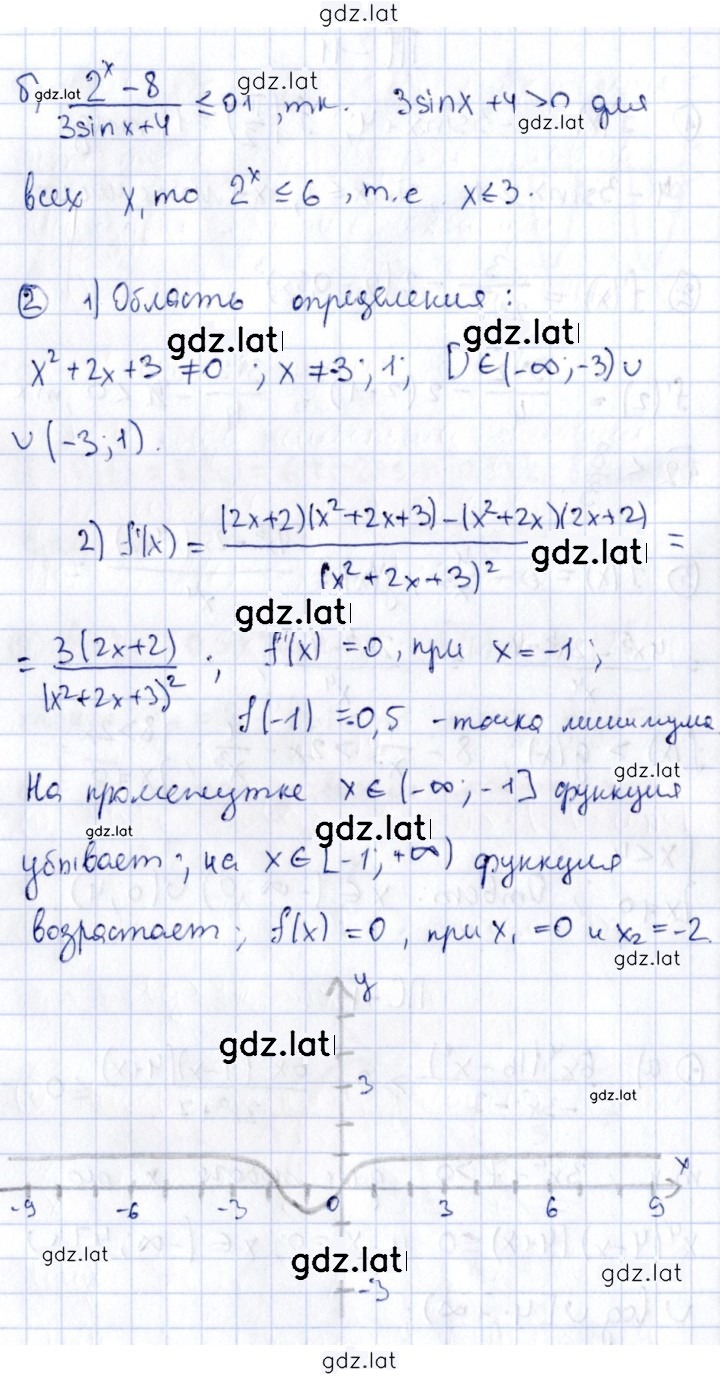 gdz.lat
б) gdz.lat (2^x - 8)/(3sinx+4) ≤ 01, т.к. gdz.lat 3sinx +4 >0 для gdz.lat
всех x, то 2^x ≤ 6, т.е x ≤ 3.
② 1) Область определения:
gdz.lat gdz.lat
x² + 2x + 3 ≠ 0 ; x ≠ -3 ; 1 ; D ∈ (-∞; -3) ∪
∪ (-3; 1).
2) f'(x) = ((2x+2)(x²+2x+3) - (x²+2x)(2x+2))/(x²+2x+3)² =
gdz.lat
gdz.lat
= 3(2x+2)/(x²+2x+3)² ; f'(x) = 0, при x = -1 ;
f(-1) = -0,5 - точка минимума
gdz.lat
На промежутке x ∈ (-∞; -1] функция
gdz.lat gdz.lat
убывает ; на x ∈ [-1; +∞) функция
возрастает ; f(x) = 0, при x₁ = 0 и x₂ = -2.
gdz.lat
y
gdz.lat
3
gdz.lat
x
-9 -6 -3 0 3 6 9
gdz.lat gdz.lat gdz.lat
-3
gdz.lat